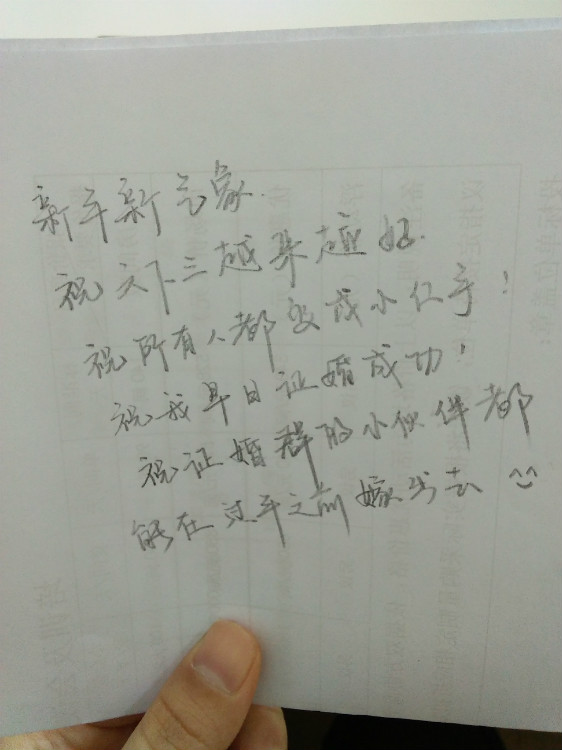 新年新气象.
祝天下三越来越好.
祝所有人都变成小仁手!
祝我早日证婚成功!
祝证婚群的小伙伴都
能在过年之前嫁出去